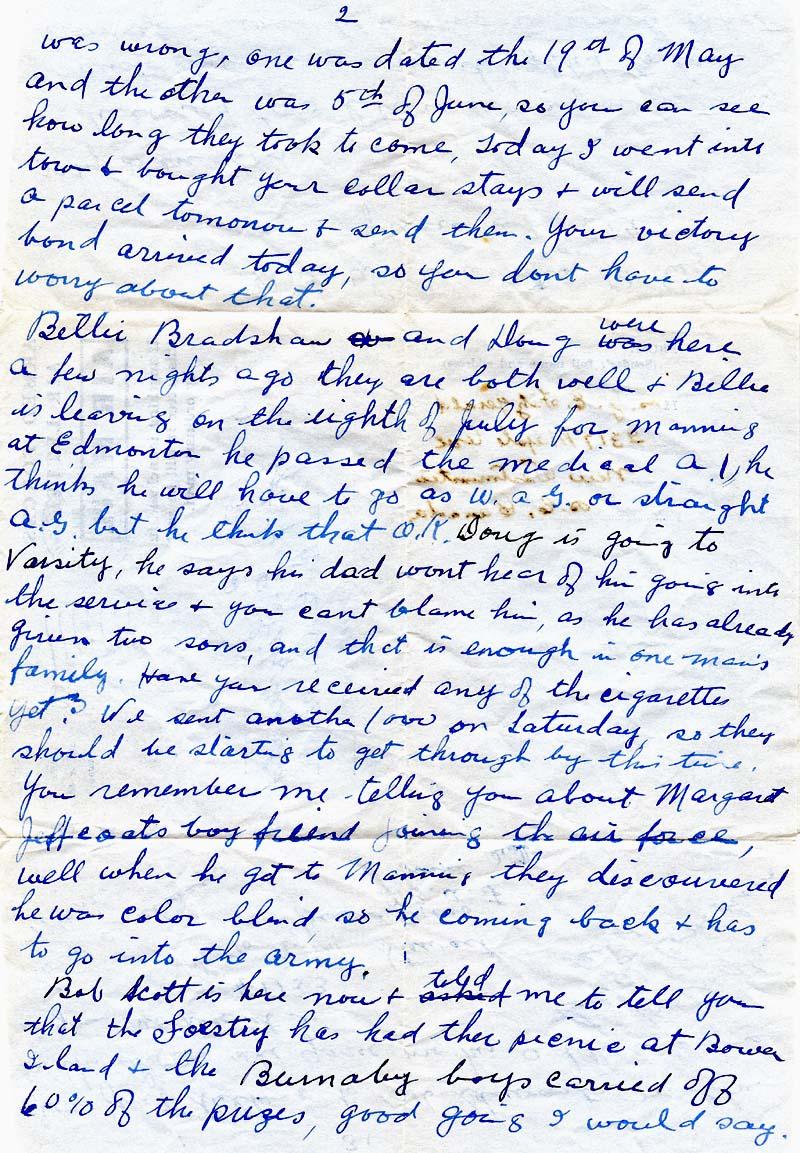 2
was wrong, one was dated the 19th of May
and the other was 5th of June, so you can see
how long they took to come, Today I went into
town & bought your collar stays & will send
a parcel tomorrow & send them. Your victory
bond arrived today, so you dont have to
worry about that.
Billie Bradshaw and Doug were was here
a few nights ago they are both well & Billie
is leaving on the eighth of July for manning
at Edmonton he passed the medical A.1, he
thinks he will have to go as W.a.G. or straight
a.G. but he thinks that O.K. Doug is going to
Varsity, he says his dad wont hear of him going into
the service & you cant blame him, as he has already
given two sons, and that is enough in one man's
family. Have you received any of the cigarettes
yet? We sent another 1000 on Saturday, so they
should be starting to get through by this time.
You remember me telling you about Margaret
Jeffcoats boy friend joining the air force,
well when he got to Manning they discouvered
he was color blind, so he coming back & has
to go into the army.
Bob Scott is here now & told asked me to tell you
that the Forestry has had ther picnic at Bowen
Island & the Burnaby boys carried off
60% of the prizes, good going I would say.